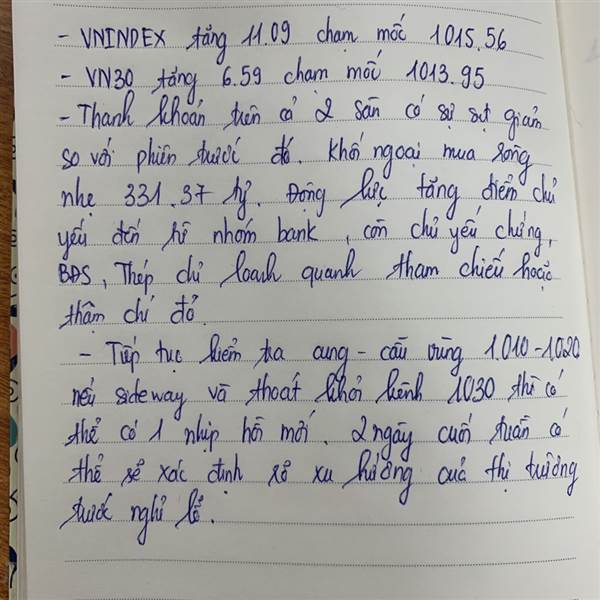 - VNINDEX tăng 11.09 chạm mốc 1015.56
- VN30 tăng 6.59 chạm mốc 1013.95
- Thanh khoản trên cả 2 sàn có sự sụt giảm
so với phiên trước đó. Khối ngoại mua ròng
nhẹ 331.37 tỷ. Động lực tăng điểm chủ
yếu đến từ nhóm bank, còn chủ yếu chứng,
BĐS, Thép chỉ loanh quanh tham chiếu hoặc
thậm chí đỏ.
- Tiếp tục kiểm tra cung - cầu vùng 1.010-1020
nếu sideway và thoát khỏi kênh 1030 thì có
thể có 1 nhịp hồi mới. 2 ngày cuối tuần có
thể sẽ xác định rõ xu hướng của thị trường
trước nghỉ lễ.